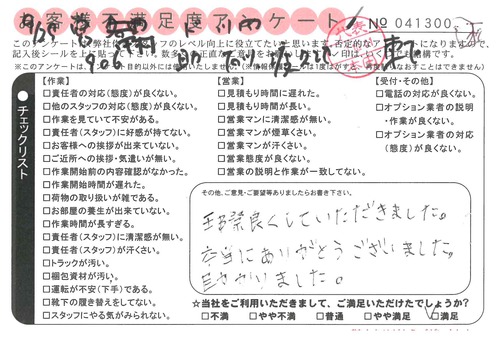 お客様不満足度アンケート
No 041300
このアンケートは弊社
※このアンケートは、アンケート目的以外には使用いたしません。
チェックリスト
【作業】
□責任者の対応(態度)が良くない。
□他のスタッフの対応(態度)が良くない。
□作業を見ていて不安がある。
□責任者(スタッフ)に好感が持てない。
□お客様への挨拶が出来ていない。
□ご近所への挨拶・気遣いが無い。
□作業開始前の内容確認がなかった。
□作業開始時間が遅れた。
□荷物の取り扱いが雑である。
□お部屋の養生が出来ていない。
□作業時間が長すぎる。
□責任者(スタッフ)に清潔感が無い。
□責任者(スタッフ)が汗くさい。
□トラックが汚い。
□梱包資材が汚い。
□運転が不安(下手)である。
□靴下の履き替えをしてない。
□スタッフにやる気がみられない。
【営業】
□見積もり時間に遅れた。
□見積もり時間が長い。
□営業マンに清潔感が無い。
□営業マンが煙草くさい。
□営業マンが汗くさい。
□営業態度が良くない。
□営業の説明と作業が一致してない。
【受付・その他】
□電話の対応が良くない。
□オプション業者の説明
・作業が良くない。
□オプション業者の対応
(態度)が良くない。
その他、ご意見・ご要望等ありましたらお書き下さい。
良くしていただきました。
本当にありがとうございました。
ました。
☆当社をご利用いただきまして、ご満足いただけたでしょうか?
□不満 □やや不満 □普通 □やや満足 □満足